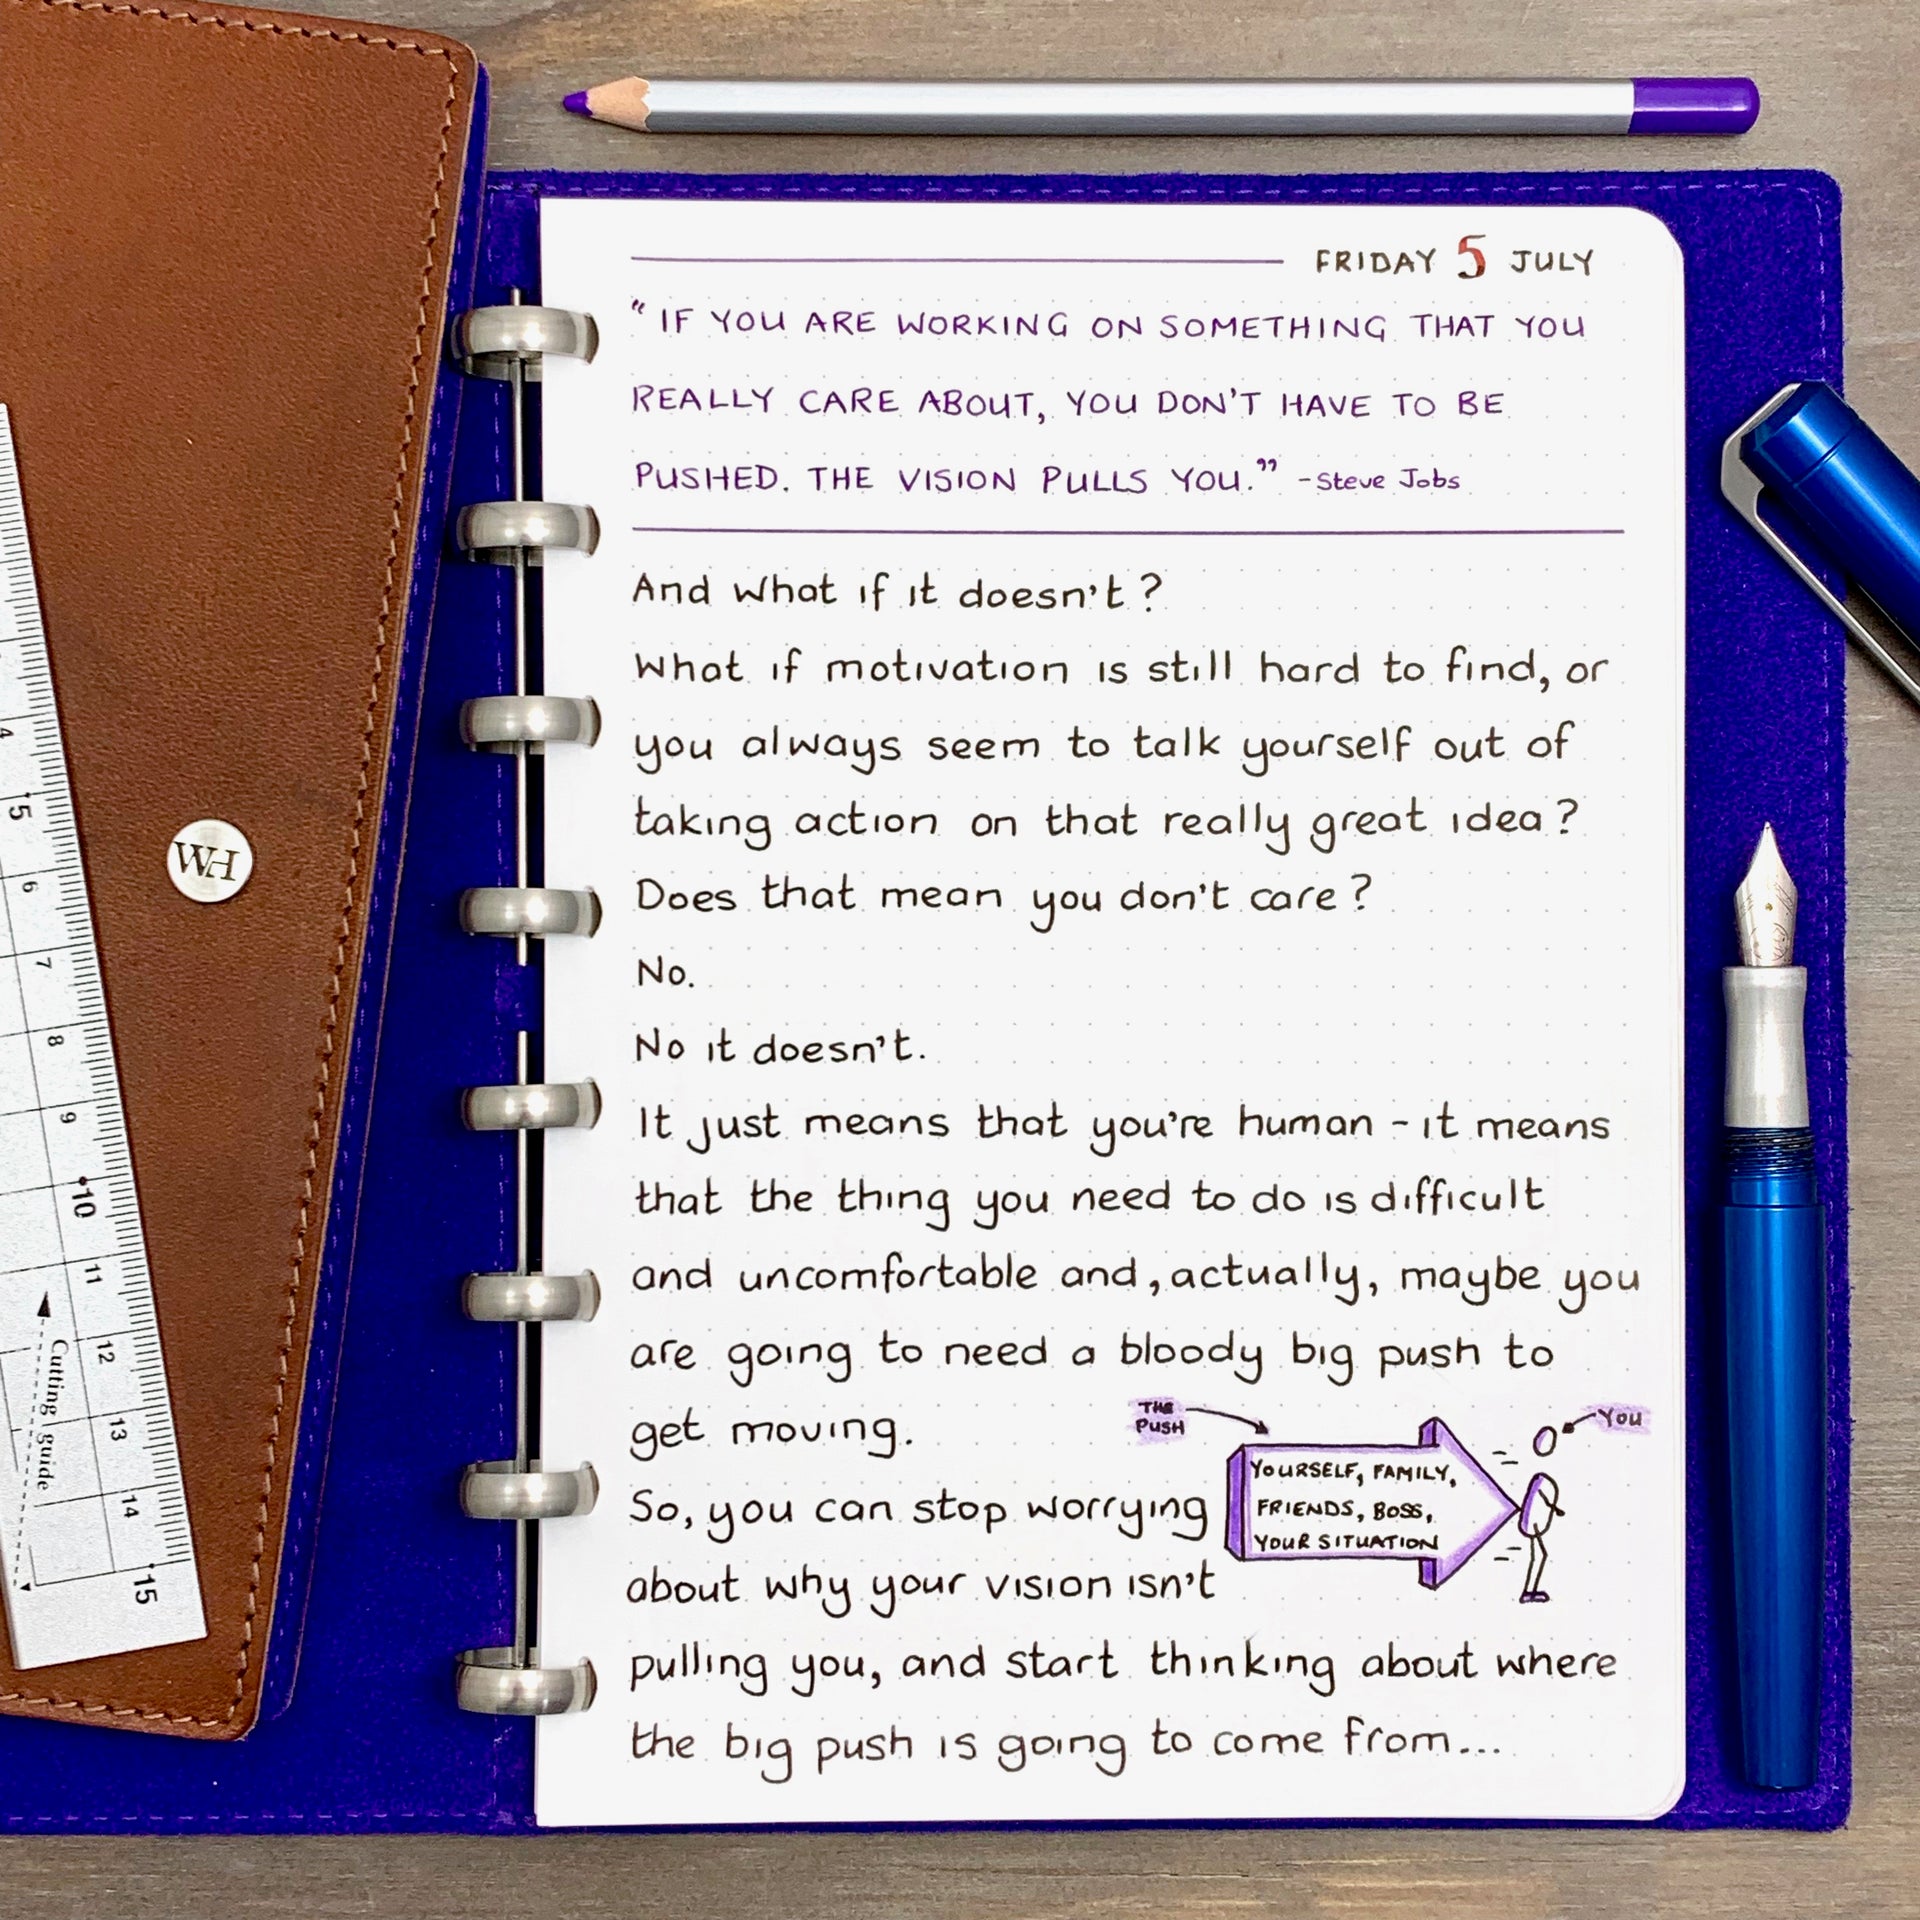 FRIDAY 5 JULY
"IF YOU ARE WORKING ON SOMETHING THAT YOU
REALLY CARE ABOUT, YOU DON'T HAVE TO BE
PUSHED. THE VISION PULLS YOU." -Steve Jobs
And what if it doesn't?
What if motivation is still hard to find, or
you always seem to talk yourself out of
taking action on that really great idea?
Does that mean you don't care?
No.
No it doesn't.
It just means that you're human - it means
that the thing you need to do is difficult
and uncomfortable and, actually, maybe you
are going to need a bloody big push to
get moving.
THE
PUSH
You
YOURSELF, FAMILY,
FRIENDS, BOSS,
YOUR SITUATION
So, you can stop worrying
about why your vision isn't
pulling you, and start thinking about where
the big push is going to come from...
WH
4
5
6
7
8
9
10
11
12
13
14
15
Cutting guide